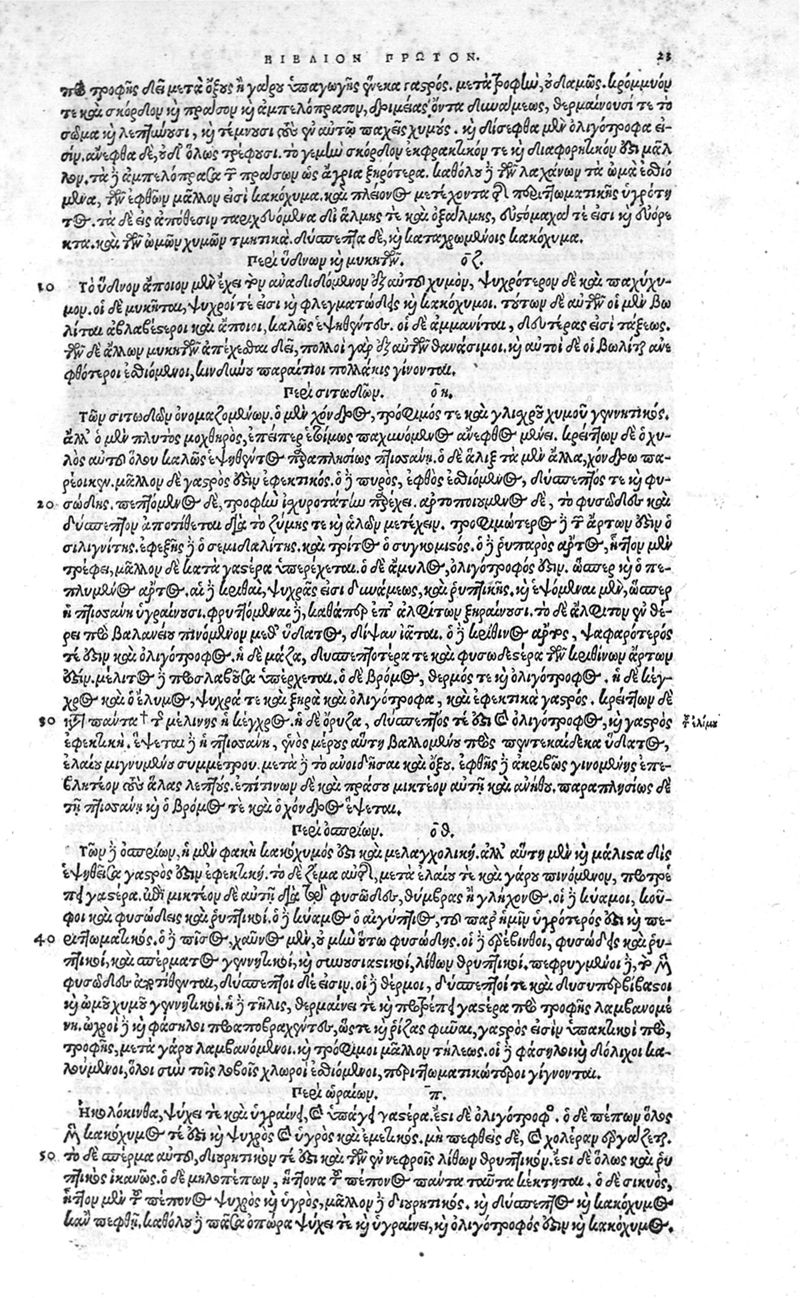 ΒΙΒΛΙΟΝ ΠΡΩΤΟΝ. 23
πὸ τροφῆς δεῖ μετὰ ὄξους ἢ γάρου ὑπαγωγῆς ἕνεκα γαστρός. μετὰ τροφὴν, οὐδαμῶς. κρόμμυον
τε καὶ σκόρδον καὶ πράσον καὶ ἀμπελόπρασον, δριμείας ὄντα δυνάμεως, θερμαίνουσί τε τὸ
σῶμα καὶ λεπτύνουσι, καὶ τέμνουσι τοὺς ἐν αὐτῷ παχεῖς χυμούς. καὶ δίσεφθα μὲν ὀλιγότροφα εἰ-
σίν. ἄνεφθα δὲ, οὐδ' ὅλως τρέφουσι. τὸ γεμὴν σκόρδον ἐκφρακτικόν τε καὶ διαφορητικόν ἐστι μᾶλ
λον. τὰ δὲ ἀμπελόπρασα τῶν πράσων ὡς ἄγρια ξηρότερα. καθόλου δὲ τῶν λαχάνων τὰ ὠμὰ ἐσθιό
μενα, τῶν ἐφθῶν μᾶλλον εἰσὶ κακόχυμα. καὶ πλείονος μετέχοντα τῆς περιττωματικῆς ὑγρότη
τος. τὰ δὲ εἰς ἀπόθεσιν ταριχευόμενα δι' ἅλμης τὲ καὶ ὀξάλμης, εὐστόμαχά τε εἰσι καὶ εὐόρε
κτα. καὶ τῶν ὠμῶν χυμῶν τμητικά. δύσπεπτα δὲ, καὶ καταχρωμένοις κακόχυμα.
Περὶ ὕδνων καὶ μυκητῶν. οζ.
10 Τὸ ὕδνον ἄποιον μὲν ἔχει τὸν ἀναδιδόμενον ἐξ αὐτοῦ χυμὸν, ψυχρότερον δὲ καὶ παχύχυ-
μον. οἱ δὲ μυκῆται, ψυχροί τε εἰσι καὶ φλεγματώδεις καὶ κακόχυμοι. τούτων δὲ αὐτῶν οἱ μὲν βω
λῖται ἀβλαβέστεροι καὶ ἄποιοι, καλῶς ἑψηθέντες. οἱ δὲ ἀμμανῖται, δευτέρας εἰσὶ τάξεως.
τῶν δὲ ἄλλων μυκητῶν ἀπέχεσθαι δεῖ, πολλοὶ γὰρ ἐξ αὐτῶν θανάσιμοι. καὶ αὐτοὶ δὲ οἱ βωλῖται ἀνε
φθότεροι ἐσθιόμενοι, κινδύνου παραίτιοι πολλάκις γίνονται.
Περὶ σιτωδῶν. οη.
Τῶν σιτωδῶν ὀνομαζομένων. ὁ μὲν χόνδρος, τρόφιμός τε καὶ γλίσχρου χυμοῦ γεννητικός.
ἀλλ' ὁ μὲν πλυτὸς μοχθηρὸς, ἐπείπερ ἑτοίμως παχυνόμενος ἄνεφθος μένει. κρείττων δὲ ὁ χυ-
λὸς αὐτοῦ ὅλου καλῶς ἑψηθέντος παραπλησίως πτισάνῃ. ὁ δὲ ἄλιξ τὰ μὲν ἄλλα, χόνδρῳ πα-
ρέοικεν. μᾶλλον δὲ γαστρός ἐστιν ἐφεκτικός. ὁ δὲ πυρὸς, ἑφθὸς ἐσθιόμενος, δύσπεπτός τε καὶ φυ-
20 σώδης. πεπτόμενος δὲ, τροφὴν ἰσχυροτάτην παρέχει. ἀρτοποιούμενος δὲ, τὸ φυσῶδες καὶ
δύσπεπτον ἀποτίθεται διὰ τὸ ζύμης τε καὶ ἁλῶν μετέχειν. τροφιμώτερος δὲ τῶν ἄρτων ἐστὶν ὁ
σιλιγνίτης. ἐφεξῆς δὲ ὁ σεμιδαλίτης. καὶ τρίτος ὁ συγκομιστός. ὁ δὲ ῥυπαρὸς ἄρτος, ἧττον μὲν
τρέφει, μᾶλλον δὲ κατὰ γαστέρα ὑπέρχεται. ὁ δὲ ἄμυλος, ὀλιγότροφός ἐστιν. ὥσπερ καὶ ὁ πε-
πλυμένος ἄρτος. αἱ δὲ κριθαὶ, ψυχρᾶς εἰσι δυνάμεως, καὶ ῥυπτικῆς. καὶ ἑψόμεναι μὲν, ὥσπερ
ἡ πτισάνη ὑγραίνουσι. φρυττόμεναι δὲ, καθάπερ ἐπ' ἀλφίτων ξηραίνουσι. τὸ δὲ ἄλφιτον ἐν θέ-
ρει πρὸ βαλανείου πινόμενον μεθ' ὕδατος, δίψαν ἰᾶται. ὁ δὲ κρίθινος ἄρτος, ψαφαρότερός
τέ ἐστιν καὶ ὀλιγότροφος. ἡ δὲ μάζα, δυσπεπτοτέρα τε καὶ φυσωδεστέρα τῶν κριθίνων ἄρτων
ἐστίν. μέλιτος δὲ προσλαβοῦσα ὑπέρχεται. ὁ δὲ βρόμος, θερμός τε καὶ ὀλιγότροφος. ἡ δὲ κέγ-
χρος καὶ ὁ ἔλυμος, ψυχρά τε καὶ ξηρὰ καὶ ὀλιγότροφα, καὶ ἐφεκτικὰ γαστρός. κρείττων δὲ
30 κατὰ πάντα † τῆς μελίνης ἡ κέγχρος. ἡ δὲ ὄρυζα, δύσπεπτός τέ ἐστι καὶ ὀλιγότροφος, καὶ γαστρὸς † ἐλύμου
ἐφεκτική. ἕψεται δὲ ἡ πτισάνη, ἑνὸς μέρους αὐτῆς βαλλομένου πρὸς πεντεκαίδεκα ὕδατος,
ἐλαίου μιγνυμένου συμμέτρου. μετὰ δὲ τὸ ἀνοιδῆσαι καὶ ὄξους. ἑφθῆς δὲ ἀκριβῶς γινομένης ἐπε-
βλητέον τοὺς ἅλας λεπτούς. ἐπίτινων δὲ καὶ πράσου μικτέον αὐτῇ καὶ ἀνήθου. παραπλησίως δὲ
τῇ πτισάνῃ καὶ ὁ βρόμος τε καὶ ὁ χόνδρος ἕψεται.
Περὶ ὀσπρίων. οθ.
Τῶν δὲ ὀσπρίων, ἡ μὲν φακῆ κακόχυμός ἐστι καὶ μελαγχολική. ἀλλ' αὕτη μὲν καὶ μάλιστα δὶς
ἑψηθεῖσα γαστρός ἐστιν ἐφεκτική. τὸ δὲ ζέμα αὐτῆς, μετὰ ἐλαίου τε καὶ γάρου πινόμενον, προτρέ
πει γαστέρα. ἔτι μικτέον δὲ αὐτῇ διὰ τὸ φυσῶδες, θύμβρας ἢ γλήχωνος. οἱ δὲ κύαμοι, κοῦ-
φοι καὶ φυσώδεις καὶ ῥυπτικοί. ὁ δὲ κύαμος ὁ αἰγύπτιος, τοῦ παρ' ἡμῖν ὑγρότερός ἐστι καὶ πε-
40 ριττωματικός. ὁ δὲ πίσος, χαῦνος μὲν, οὐ μὴν οὕτω φυσώδης. οἱ δὲ ἐρέβινθοι, φυσώδεις καὶ ῥυ-
πτικοὶ, καὶ σπέρματος γεννητικοὶ, καὶ συνουσιαστικοὶ, λίθων θρυπτικοί. πεφρυγμένοι δὲ, τὸ μὲν
φυσῶδες ἀποτίθενται, δύσπεπτοι δέ εἰσιν. οἱ δὲ θέρμοι, δύσπεπτοί τε καὶ δυσυπορβίβαστοι
καὶ ὠμοῦ χυμοῦ γεννητικοί. ἡ δὲ τῆλις, θερμαίνει τε καὶ προτρέπει γαστέρα πρὸ τροφῆς λαμβανομέ
νη. ὦχροι δὲ καὶ φάσηλοι προαποβραχέντες, ὥστε καὶ ῥίζας φῦναι, γαστρός εἰσιν ὑπακτικοὶ πρὸ,
τροφῆς, μετὰ γάρου λαμβανόμενοι. καὶ τρόφιμοι μᾶλλον τήλεως. οἱ δὲ φάσηλοι καὶ δόλιχοι κα-
λούμενοι, ὅλοι σὺν τοῖς λοβοῖς χλωροὶ ἐσθιόμενοι, περιττωματικώτεροι γίγνονται.
Περὶ ὡραίων. π.
Ἡ κολόκυνθα, ψύχει τε καὶ ὑγραίνει, καὶ ὑπάγει γαστέρα. ἔστι δὲ ὀλιγότροφος. ὁ δὲ πέπων ὅλος
μὲν κακόχυμός τέ ἐστι καὶ ψυχρὸς καὶ ὑγρὸς καὶ ἐμετικός. μὴ πεφθεὶς δὲ, καὶ χολέραν ἐργάζεται.
50 τὸ δὲ σπέρμα αὐτοῦ, διουρητικόν τέ ἐστι καὶ τῶν ἐν νεφροῖς λίθων θρυπτικόν. ἔστι δὲ ὅλως καὶ ῥυ
πτικὸς ἱκανῶς. ὁ δὲ μηλοπέπων, ἥττονα τοῦ πέπονος πάντα ταῦτα κέκτηται. ὁ δὲ σίκυος,
ἧττον μὲν τοῦ πέπονος ψυχρὸς καὶ ὑγρὸς, μᾶλλον δὲ διουρητικός. καὶ δύσπεπτος καὶ κακόχυμος
κἂν πεφθῇ. καθόλου δὲ πᾶσα ὀπώρα ψύχει τε καὶ ὑγραίνει, καὶ ὀλιγότροφός ἐστιν καὶ κακόχυμος.